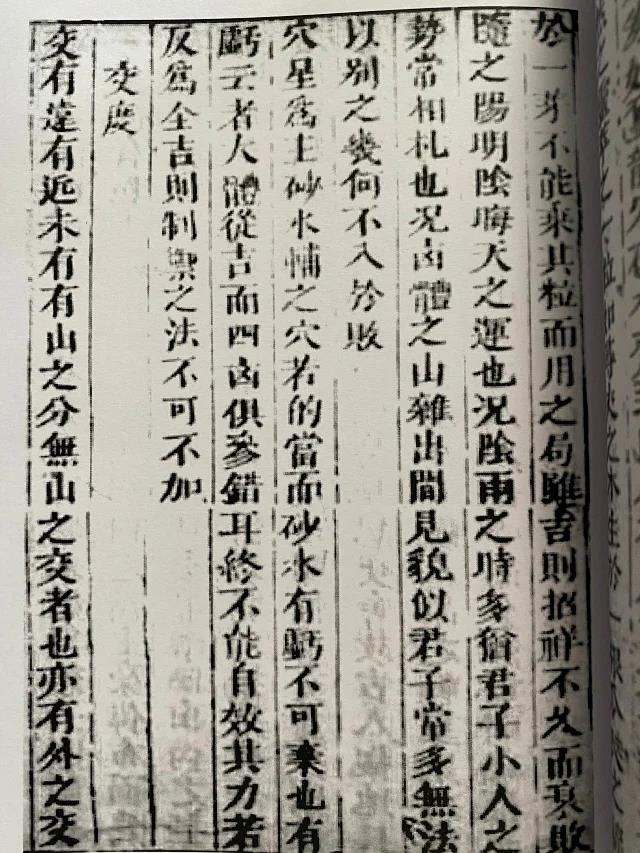 於一芽不能乘其粒而用之局雖吉則招祥不久而衰敗
隨之陽明陰晦天之運也況陰雨之時多猶君子小人之
勢常相札也況凶體之山雜出間見貌似君子常多無法
以別之幾何不入於敗
穴星為主砂水輔之穴若的當而砂水有虧不可棄也有
虧云者大體從吉而四凶俱參錯耳終不能自效其力若
反為全吉則制禦之法不可不加
交度
交有遠有近未有有山之分無山之交者也亦有外之交